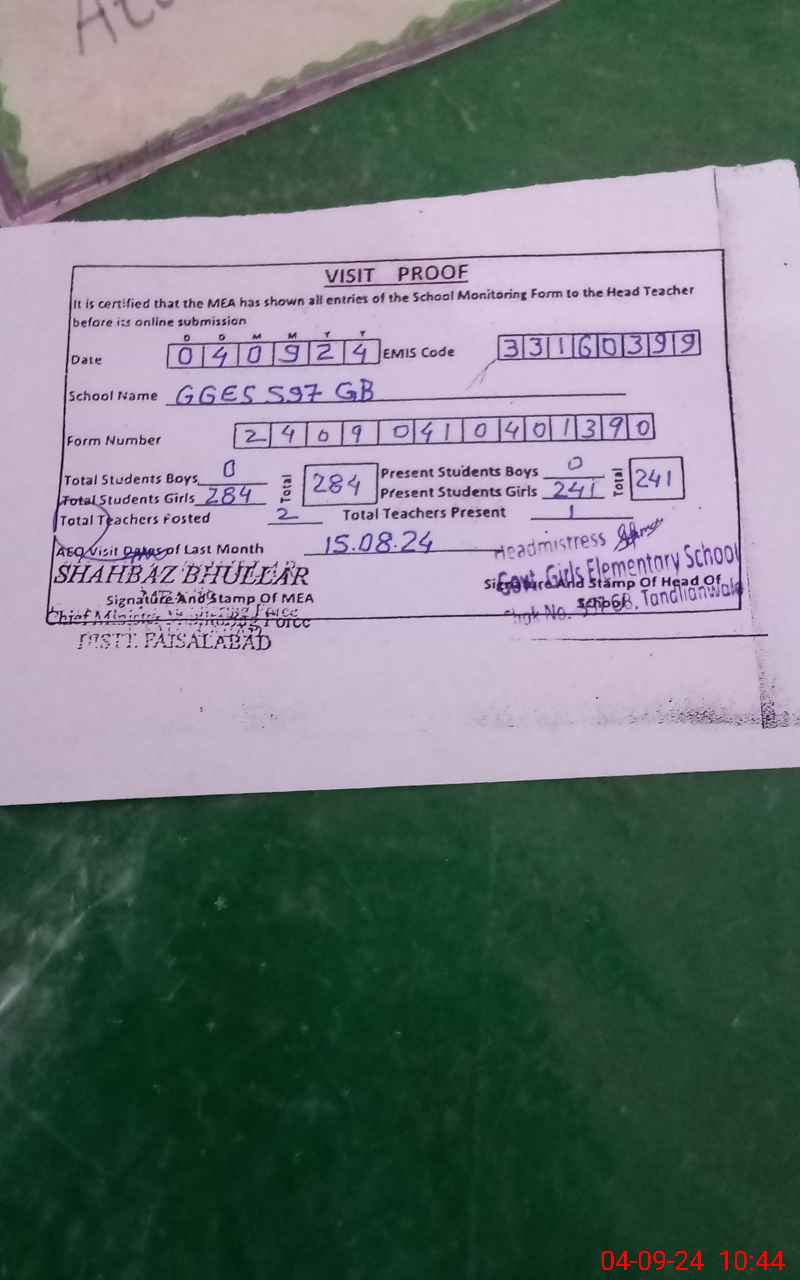 VISIT PROOF
It is certified that the MEA has shown all entries of the School Monitoring Form to the Head Teacher
before its online submission
D D M M Y Y
Date 040924 EMIS Code 33160399
School Name GGES 597 GB
Form Number 24090410401390
Total Students Boys 0 Total 284 Present Students Boys 0 Total 241
Total Students Girls 284 Present Students Girls 241
Total Teachers Posted 2 Total Teachers Present 1
AEO Visit of Last Month 15.08.24
SHAHBAZ BHULLAR
Signature And Stamp Of MEA
Chief Minister Monitoring Force
DISTT. FAISALABAD
Headmistress
Govt. Girls Elementary School
Signature And Stamp Of Head Of
School
Chak No. GB, Tandlianwala
04-09-24 10:44